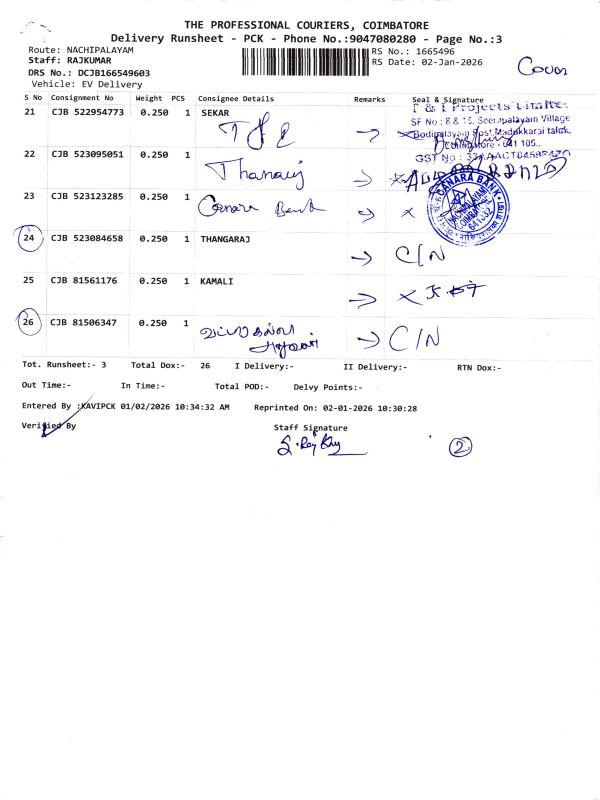 THE PROFESSIONAL COURIERS, COIMBATORE
Delivery Runsheet - PCK - Phone No.:9047080280 - Page No.:3
Route: NACHIPALAYAM
RS No.: 1665496
Staff: RAJKUMAR
RS Date: 02-Jan-2026
Cover
DRS No.: DCJB166549603
Vehicle: EV Delivery
S No Consignment No Weight PCS Consignee Details Remarks Seal & Signature
21 CJB 522954773 0.250 1 SEKAR
T & I Projects Limited
SF No : 8 & 15, Seerapalayam Village
Bodipalayam Post, Madukkarai taluk,
Coimbatore - 641 105.
GST No :
22 CJB 523095051 0.250 1
Thanavij
23 CJB 523123285 0.250 1
Canara Bank
CANARA BANK
24 CJB 523084658 0.250 1 THANGARAJ
C/N
25 CJB 81561176 0.250 1 KAMALI
26 CJB 81506347 0.250 1
C/N
Tot. Runsheet:- 3 Total Dox:- 26 I Delivery:- II Delivery:- RTN Dox:-
Out Time:- In Time:- Total POD:- Delvy Points:-
Entered By :KAVIPCK 01/02/2026 10:34:32 AM Reprinted On: 02-01-2026 10:30:28
Verified By Staff Signature
2